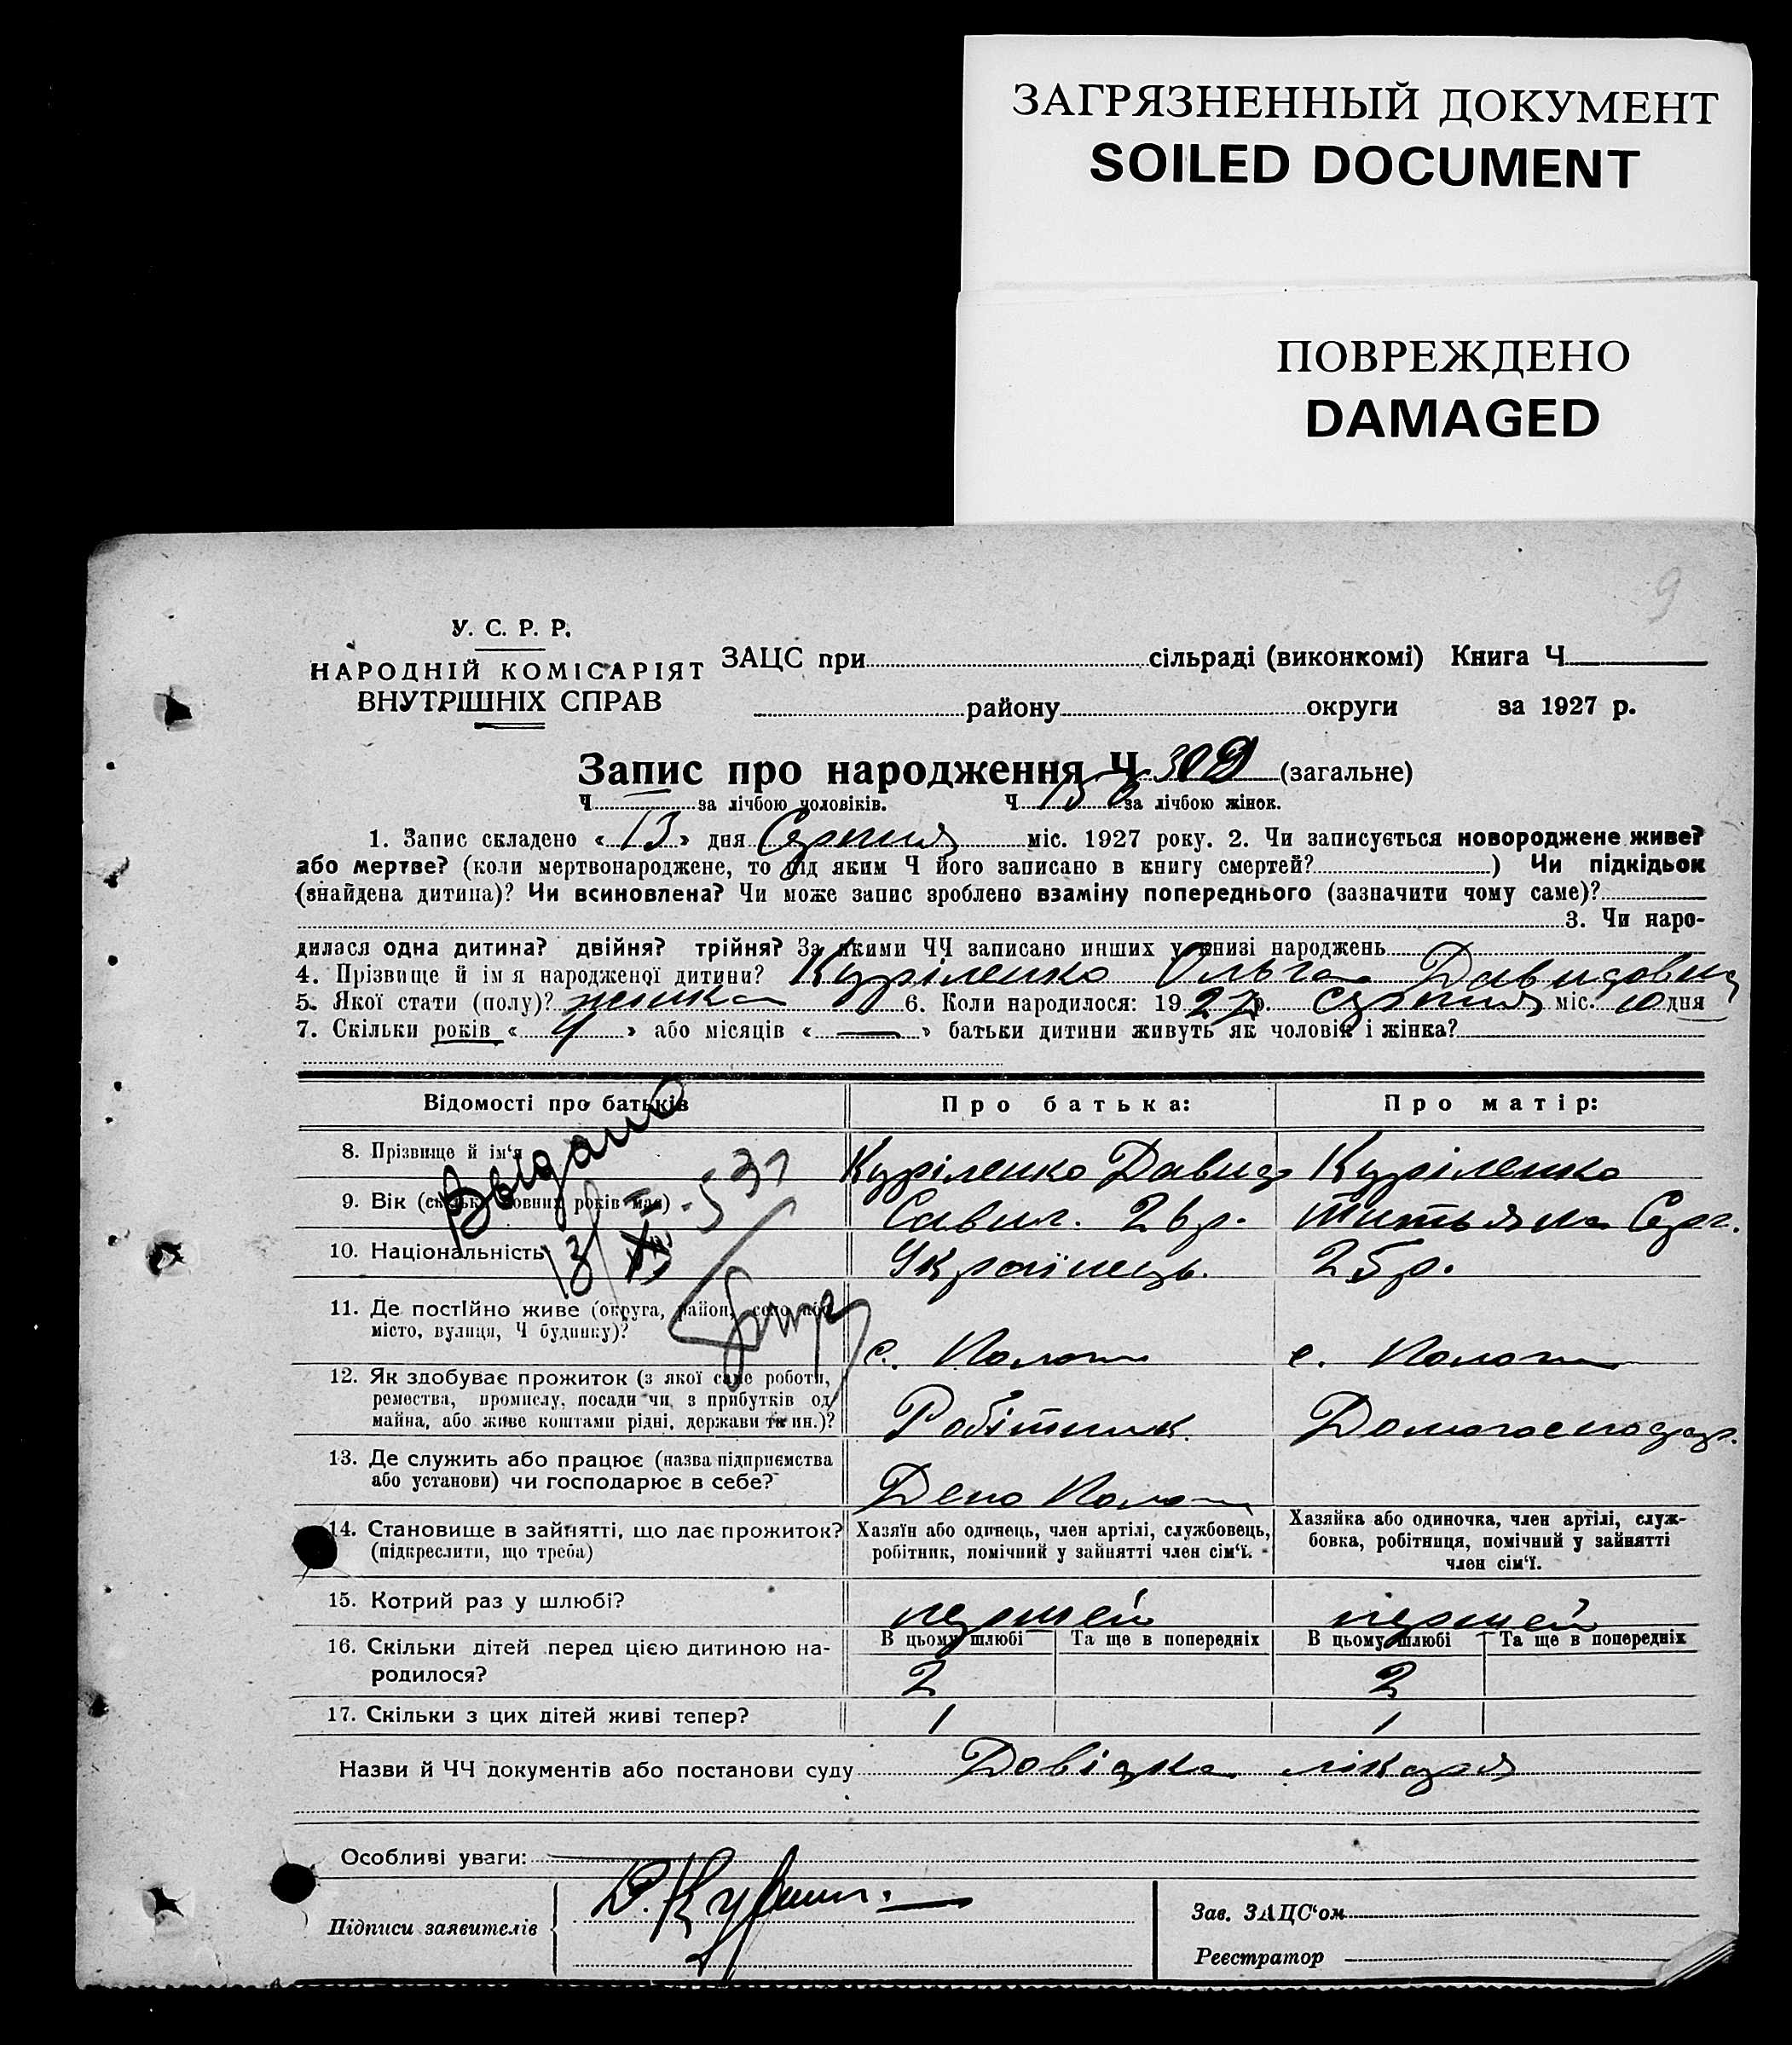 ЗАГРЯЗНЕННЫЙ ДОКУМЕНТ
SOILED DOCUMENT
ПОВРЕЖДЕНО
DAMAGED
9
У. С. Р. Р.
НАРОДНІЙ КОМІСАРІЯТ
ВНУТРІШНІХ СПРАВ
ЗАЦС при сільраді (виконкомі) Книга Ч
району округи за 1927 р.
Запис про народження Ч (загальне)
Ч за лічбою чоловіків. Ч за лічбою жінок.
1. Запис складено « 13 » дня Серпня міс. 1927 року. 2. Чи записується новороджене живе?
або мертве? (коли мертвонароджене, то під яким Ч його записано в книгу смертей? ) Чи підкідьок
(знайдена дитина)? Чи всиновлена? Чи може запис зроблено взаміну попереднього (зазначити чому саме)?
3. Чи наро-
дилася одна дитина? двійня? трійня? За якими ЧЧ записано инших у книзі народжень
4. Прізвище й ім я народженої дитини? Куріленко Ольга Давидовна
5. Якої стати (полу)? жінка 6. Коли народилося: 1927 р. Серпня міс. 10 дня
7. Скільки років « 4 » або місяців « — » батьки дитини живуть як чоловік і жінка?
Відомості про батьків Про батька: Про матір:
8. Прізвище й ім'я Куріленко Давид Куріленко
9. Вік (скільки повних років має) Савил. 26 р. Титьяна Серг.
10. Національність Українець. 25 р.
Выдано
13/XII-31
11. Де постійно живе (округа, район, село або
місто, вулиця, Ч будинку)? с. с.
12. Як здобуває прожиток (з якої саме роботи,
ремества, промислу, посади чи з прибутків од
майна, або живе коштами рідні, держави та ин.)? Робітник. Домогосподар.
13. Де служить або працює (назва підприємства
або установи) чи господарює в себе? Депо
14. Становище в зайнятті, що дає прожиток?
(підкреслити, що треба)
Хазяїн або одинець, член артілі, службовець,
робітник, помічний у зайнятті член сім'ї.
Хазяйка або одиночка, член артілі, служ-
бовка, робітниця, помічний у зайнятті
член сім'ї.
15. Котрий раз у шлюбі? першей першей
16. Скільки дітей перед цією дитиною на-
родилося?
В цьому шлюбі Та ще в попередніх В цьому шлюбі Та ще в попередніх
2 2
17. Скільки з цих дітей живі тепер? 1 1
Назви й ЧЧ документів або постанови суду Довідка лікаря
Особливі уваги:
Підписи заявителів
Зав. ЗАЦС'ом
Реєстратор